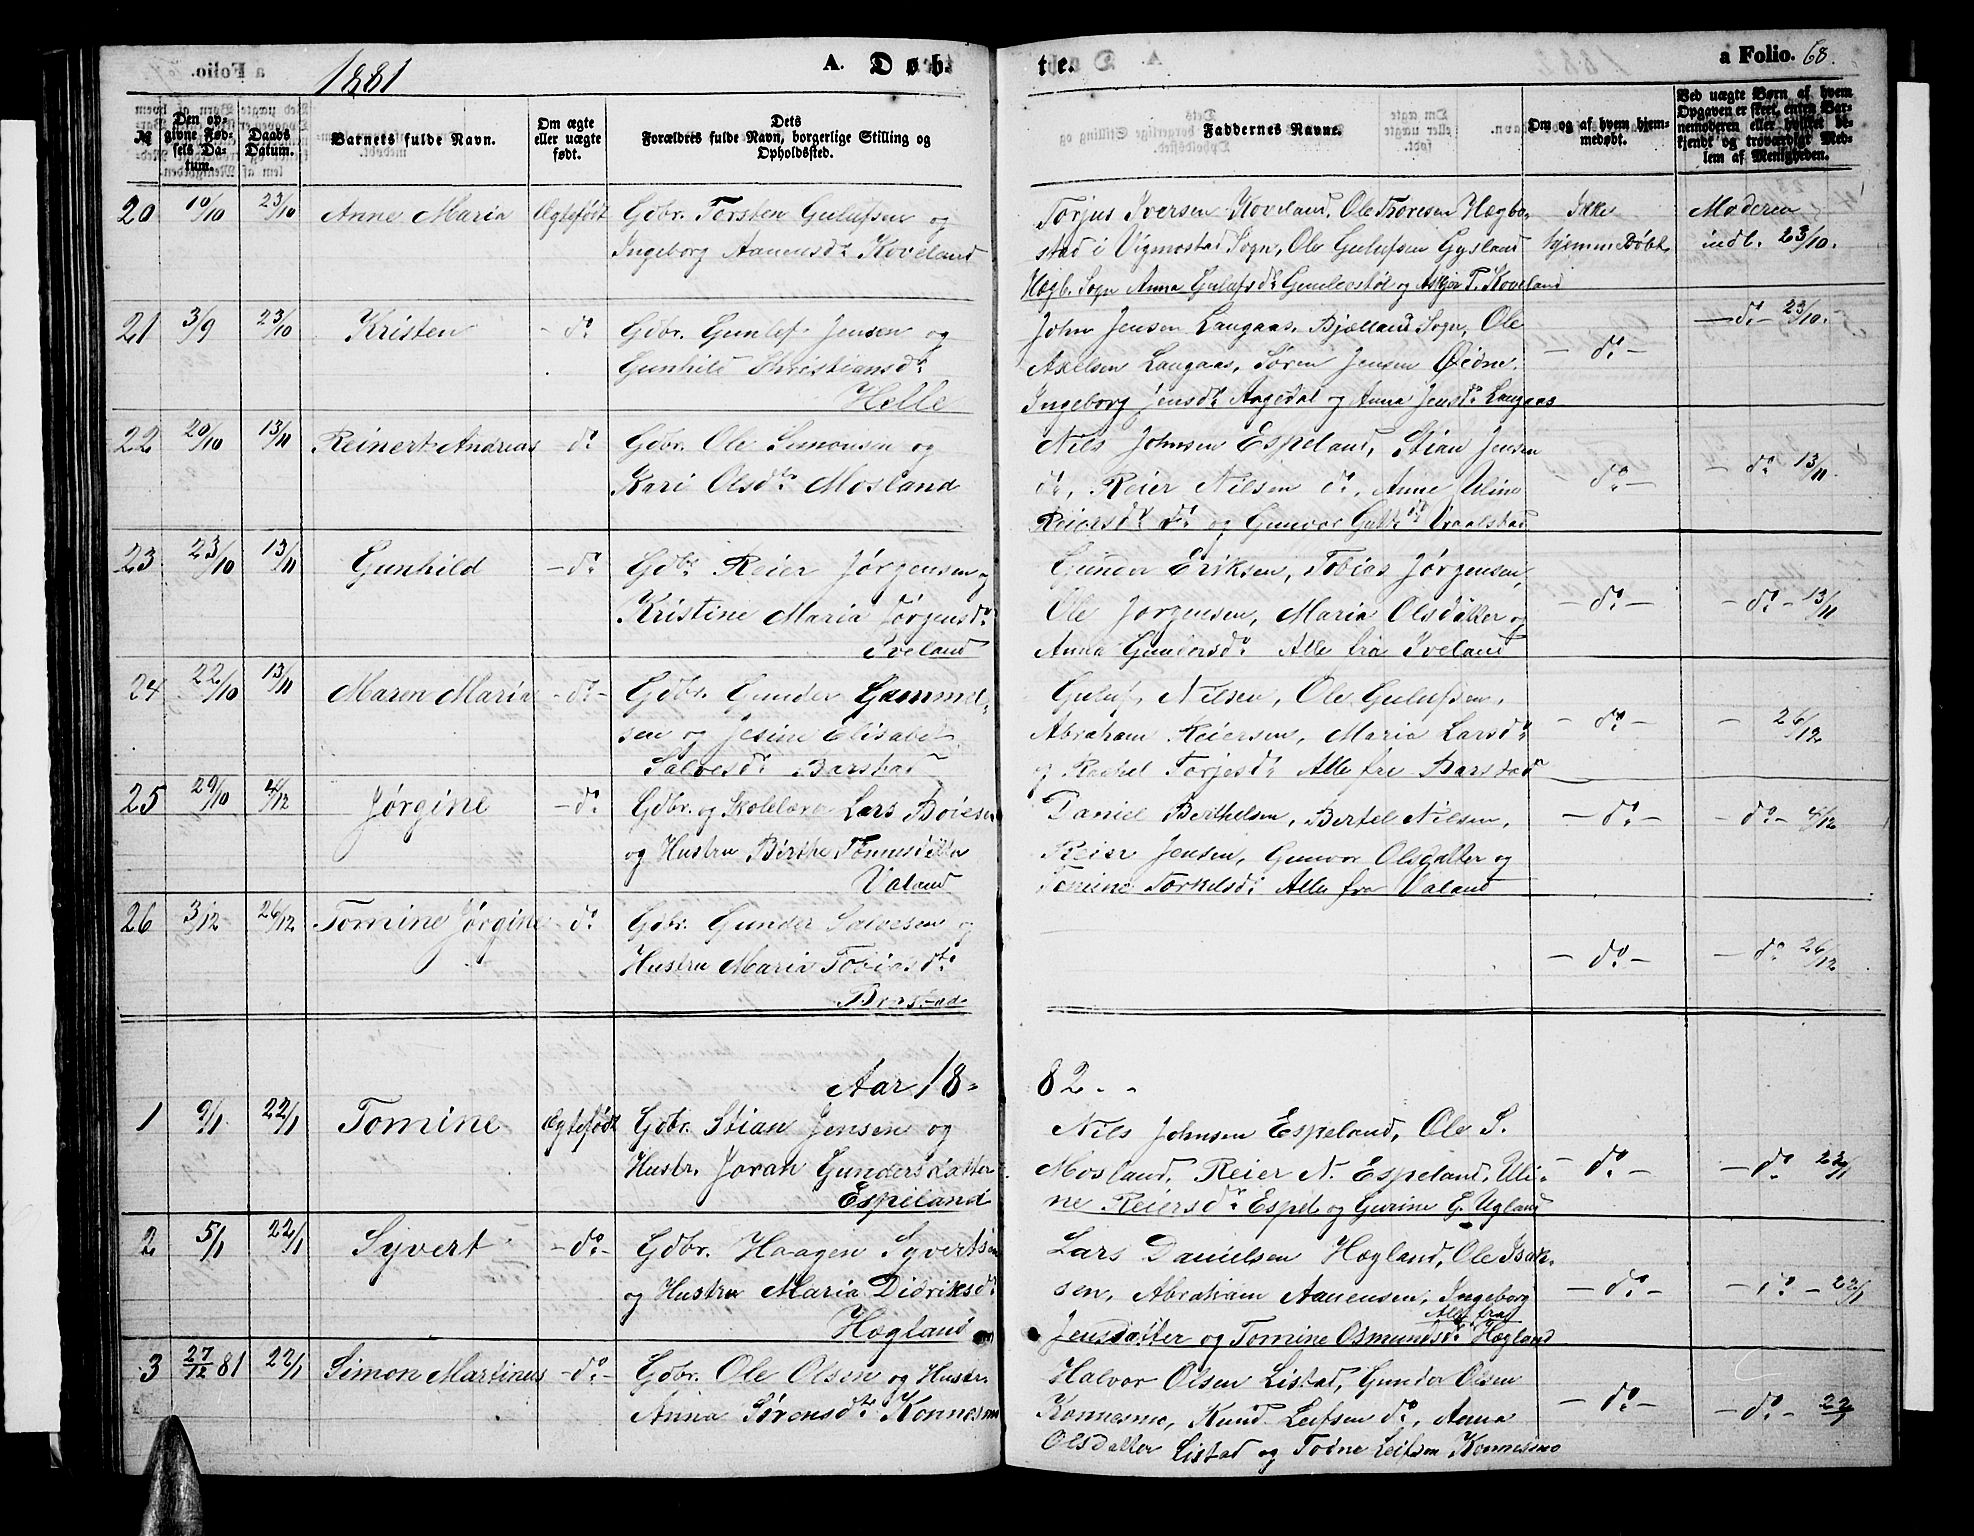 1881
A. Døb
te.
a Folio. 68.
№
Den op-
givne Fød-
sels Da-
tum.
Daabs
Datum.
Barnets fulde Navn.
Om ægte
eller uægte
født.
Dets
Forældres fulde Navn, borgerlige Stilling og
Opholdssted.
Faddernes Navne.
Om og af hvem hjem-
medøbt.
Ved uægte Børn, af hvem
Opgaven er skeet, enten Bar-
nemoderen eller hvilket be-
kjendt og troværdigt Med-
lem af Menigheden.
20 10/10 23/10 Anne Maria Ægtefødt Gdbr. Torsten Gulufsen og
Ingeborg Aanensdr. Koveland
Torjus Iversen Koveland, Ole Thoresen Hægbo-
stad i Vigmostad Sogn, Ole Gulufsen Gysland
Hægb. Sogn Anna Gulufsdr. Gunlevstøl og Askjer T. Koveland
Ikke
hjemmedøbt
Moderen
indl. 23/10.
21 3/9 23/10 Kristen - do. Gdbr. Gunlef Jensen og
Gunhild Christiansdr.
Helle
John Jensen Langaas, Bjelland Sogn, Ole
Axelsen Langaas, Søren Jensen Øidne,
Ingeborg Jensdr. Aagedal og Anna Jensdr. Langaas
- do. -
- do. - 23/10.
22 20/10 13/11 Reinert Andreas - do. Gdbr. Ole Simonsen og
Kari Olsdtr. Mosland
Nils Johnsen Espeland, Stian Jensen
do., Reier Nilsen do., Anne Uline
Reiersdr. do. og Gunvor Vraalstad
- do. -
- do. 13/11.
23 23/10 13/11 Gunhild - do. Gdbr. Reier Jørgensen og
Kristine Maria Jørgensdr.
Iveland
Gunder Eriksen, Tobias Jørgensen,
Ole Jørgensen, Maria Olsdatter og
Anna Gundersdr. Alle fra Iveland
- do. -
- do. - 13/11
24 22/10 13/11 Maren Maria - do. - Gdbr. Gunder Gammel-
sen og Jesine Elisabet
Salvesdr. Barstad
Guluf Nilsen, Ole Gulufsen,
Abraham Reiersen, Maria Larsdr.
og Rachel Torjesdr. Alle fra Barstad
- do. -
- 26/12
25 29/10 4/12 Jørgine - do. Gdbr. og Skolelærer Lars Boiesen
og Hustru Birthe Tønnesdatter
Valand
Daniel Berthelsen, Bertel Nilsen,
Reier Jensen, Gunvor Olsdatter og
Tomine Torkelsdr. Alle fra Valand
- do. -
- do. - 4/12
26 3/12 26/12 Tomine Jørgine - do. Gdbr. Gunder Salvesen og
Hustru Maria Tobiasdtr.
Barstad
- do. -
- do. 26/12
Aar 18-
82. -
1 9/1 22/1 Tomine Ægtefødt Gdbr. Stian Jensen og
Hustr. Joran Gundersdatter
Espeland
Nils Johnsen Espeland, Ole S.
Mosland, Reier N. Espeland, Uli-
ne Reiersdr. Espel. og Gurine G. Ugland
- do. -
- do. 22/1
2 5/1 22/1 Syvert - do. - Gdbr. Haagen Syvertsen
og Hustru Maria Didriksdr.
Hægland
Lars Danielsen Hægland, Ole Isak-
sen, Abraham Aanensen, Ingeborg
Jensdatter og Tomine Osmundsdr. Alle fra Hægland
- do. -
- do. - 22/1
3 27/12 81 22/1 Simon Martinus - do. - Gdbr. Ole Olsen og Hustr.
Anna Sørensdtr. Konnesmo
Halvor Olsen Listad, Gunder Olsen
Konnesmo, Knud Leifsen do., Anna
Olsdatter Listad og Todne Leifsen Konnesmo
- do. -
- do. - 22/1